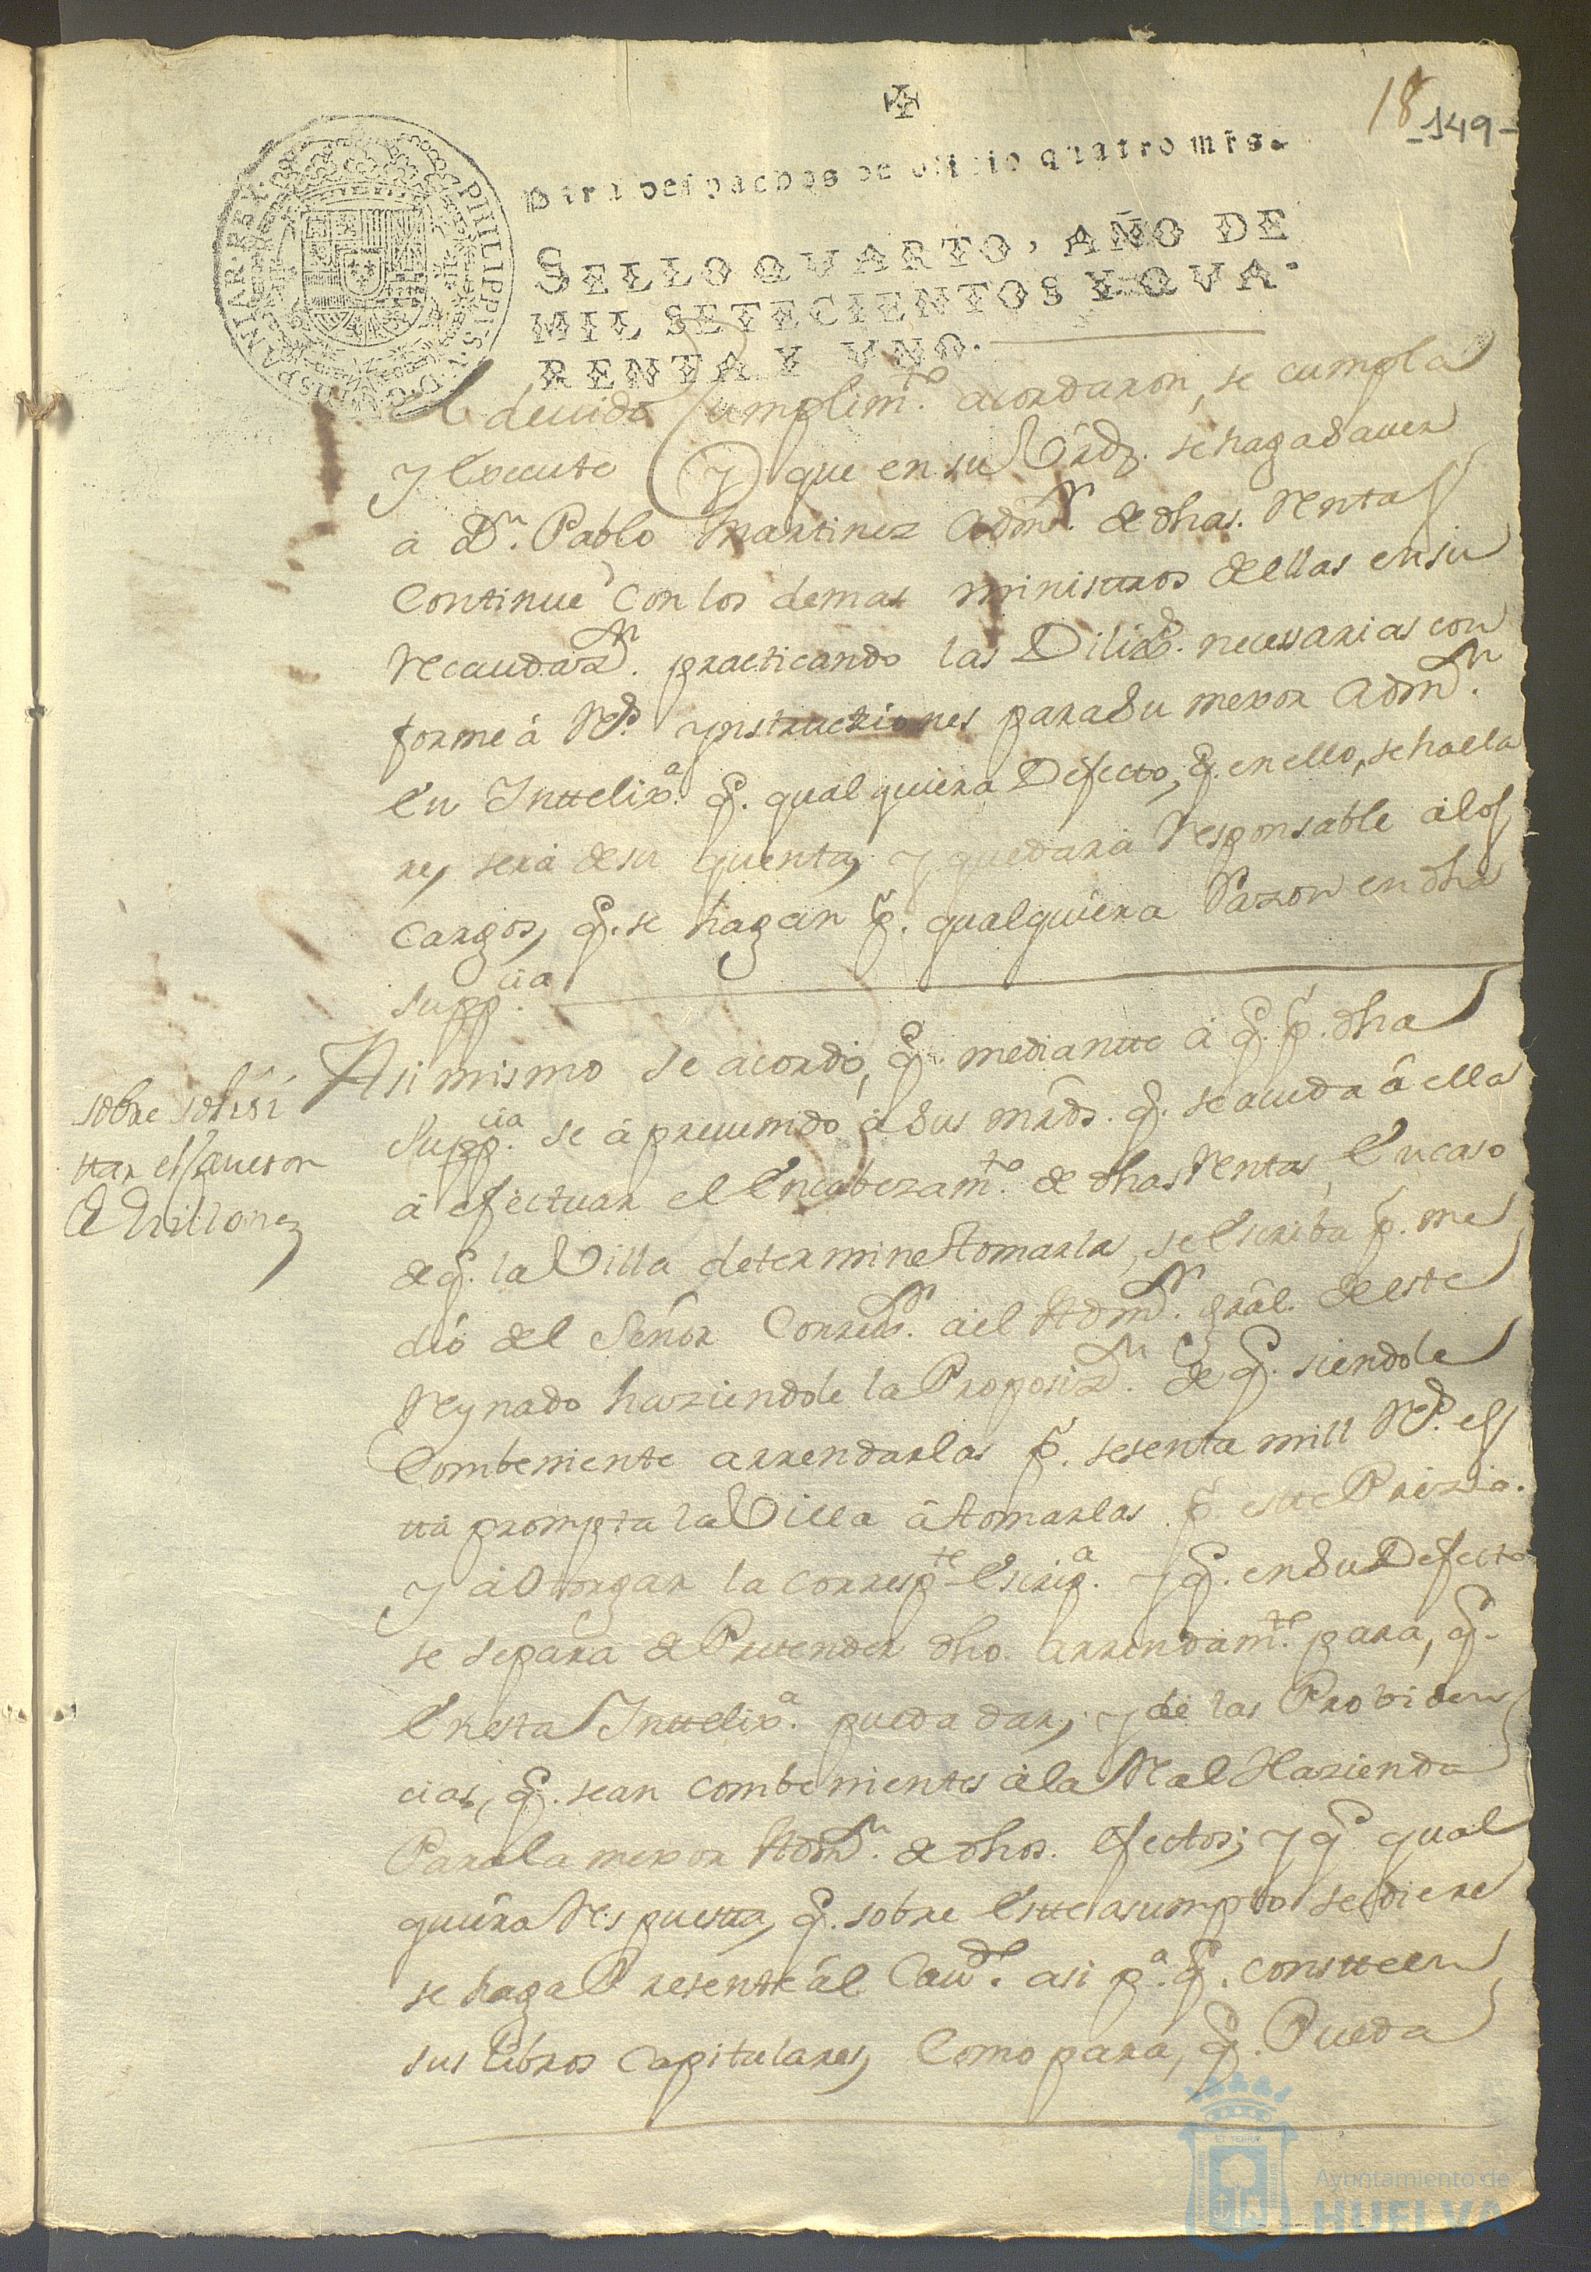 18
-149-
Para despachos de oficio quatro mrs.
SELLO QVARTO, AÑO DE
MIL SETECIENTOS Y QVA-
RENTA Y VNO.
PHILIPPUS V. D. G. HISPANIAR. REX.
el devido Cumplim.to acordaron, se cumpla
y execute y que en su Vird. se haga saver
a Dn. Pablo Martinez Admr. de dhas. rentas
Continue con los demas ministros dellas en su
recaudazn. practicando las Dilixs. necessarias con
forme á Rs. ynstruciones para su mexor Admn.
En Inttelixa. q. qualquiera Defecto, q. en ello, se halla
re, será de su quenta, y quedará responsable a los
Cargos, q. se hagan p. qualquiera Razon en dha
suppcia.
sobre solisi
ttar el favor
de millones
Asi mismo se acordó, q. mediantte a q. p. dha
Suppcia. se á prevenido á Sus mrds. q. se acuda á ella
á efectuar el Encabezamto. de dhas Rentas, En caso
de q. la Villa determine tomarlas, se Escriba p. me
dio del Señor Correxr. a el Admr. grâl. de este
Reynado haziendole la Proposizn. de q. siendole
Combeniente arrendarlas p. sesenta mill Rs. es
tta prompta la Villa á tomarlas p. estte Prezio.
y á Otorgar la correspte. Escripa. y q. en Su Defecto
se separa de Prettender dho. arrendamte. para, q.
En esta Inttelixa. pueda dar, y de las Probiden
cias, q. sean combenientes á la Real Hazienda
Para la mexor Admn. de dhos. efectos; y q. qual
quiera Respuestta, q. sobre Estte asumpto se diere
se haga Presentte ál Cavdo. asi pa. q. constte en
sus libros Capitulares, Como para, q. Pueda
Ayuntamiento de
HUELVA